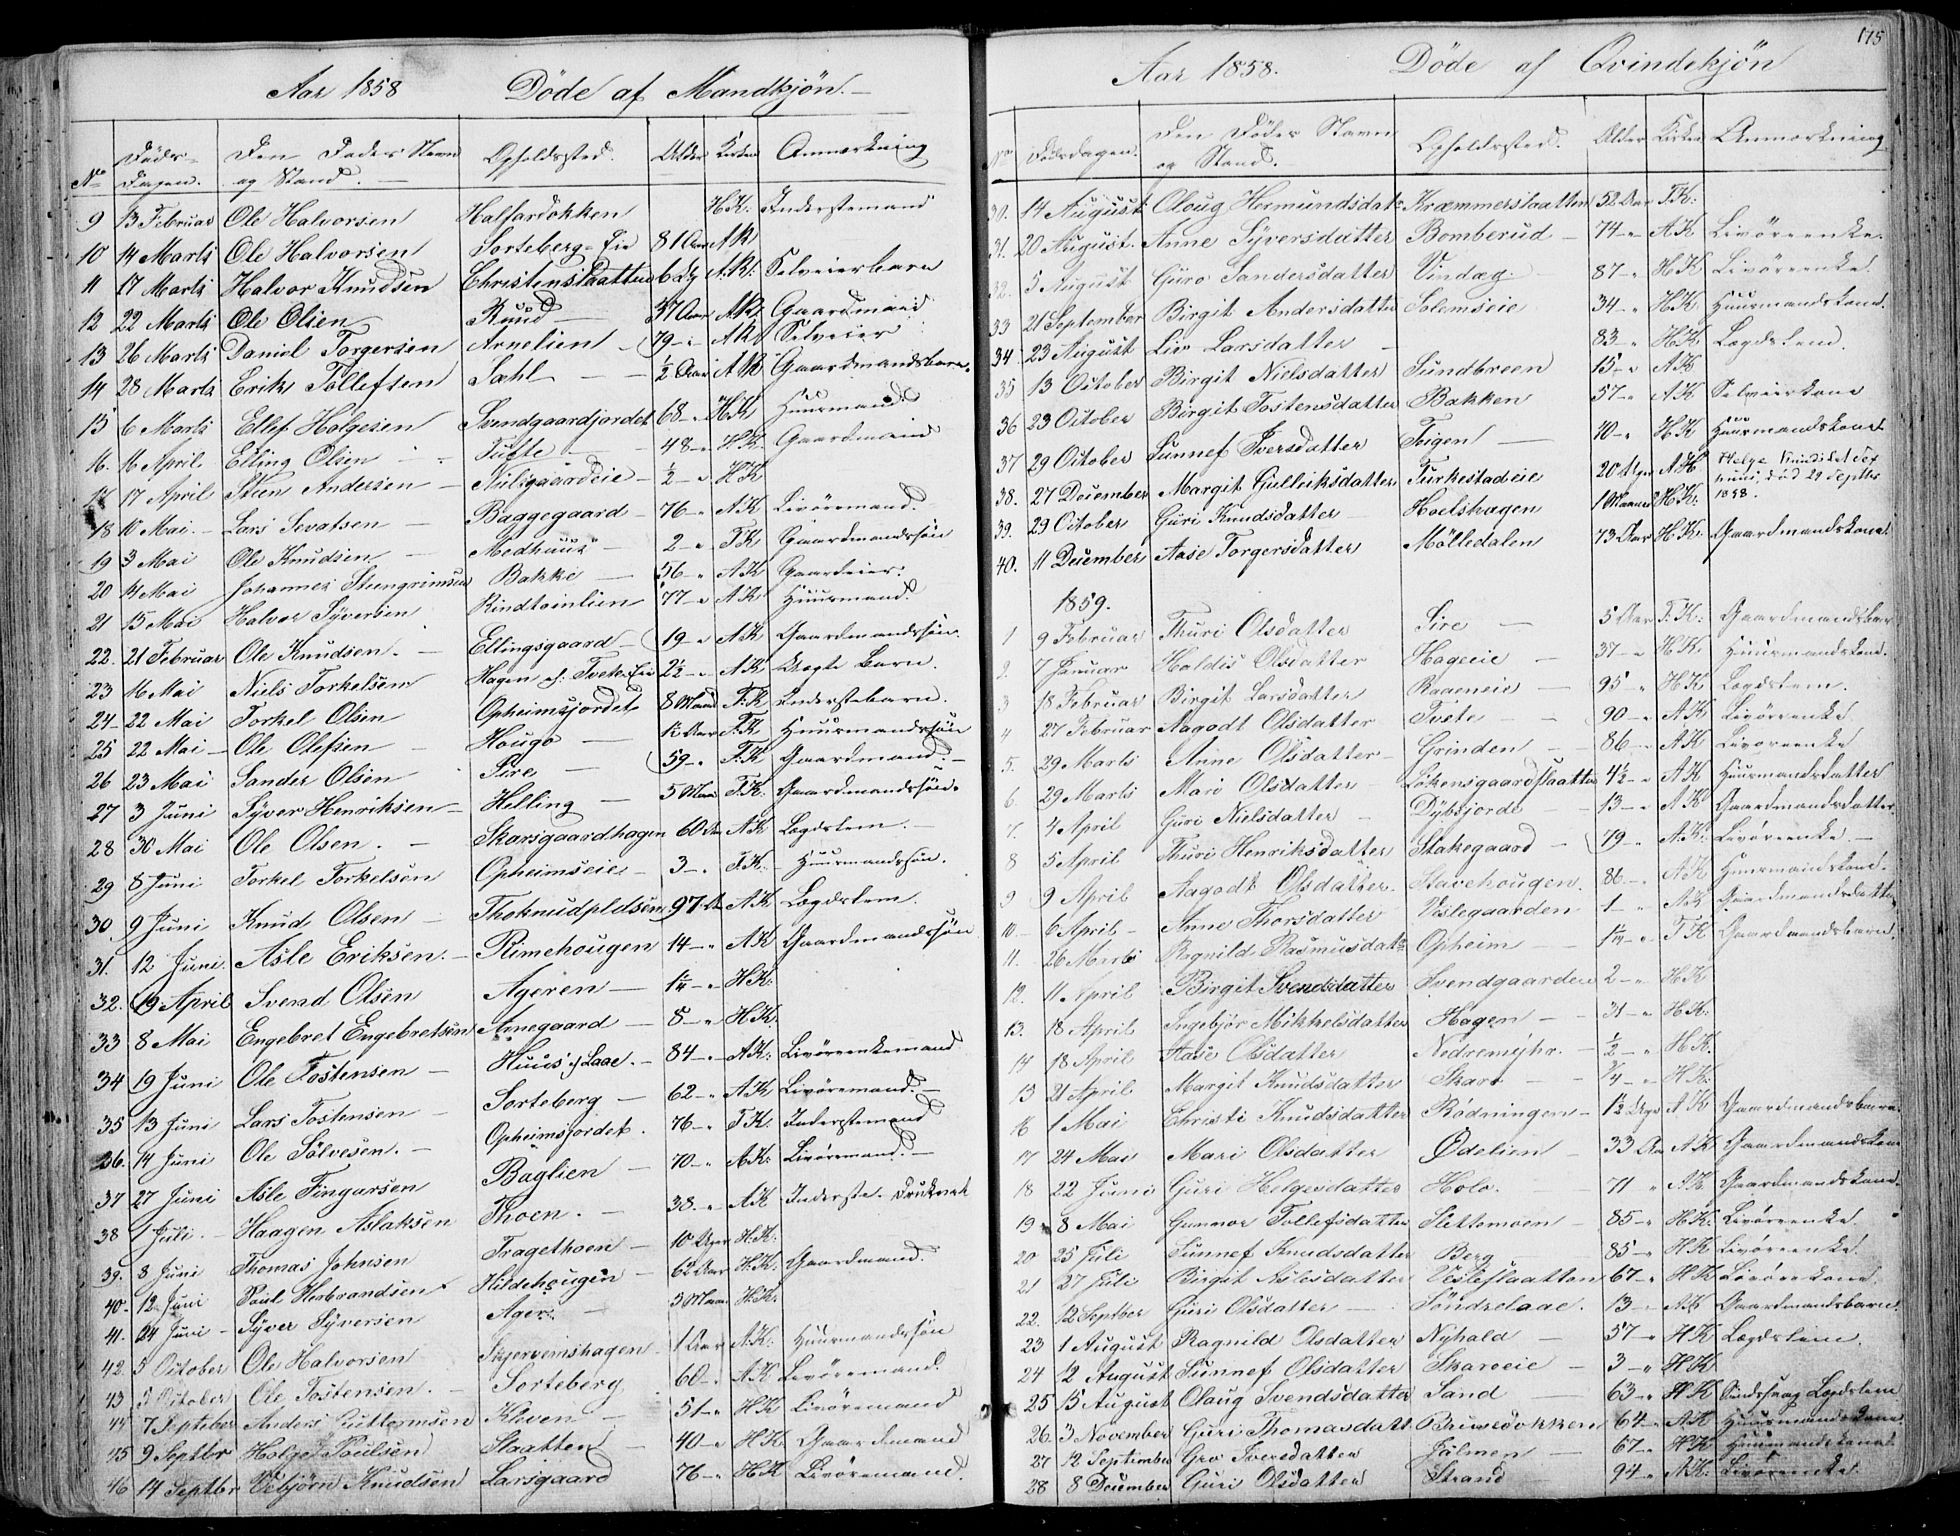 175
Aar 1858 Døde af Mandkjøn.
No Døds-Dagen. Den Dødes Navn og Stand. Opholdssted. Alder Kirken Anmærkning
9 13 Februar Ole Halvorsen Halfardokken H.K. Inderstemand
10 14 Marts Ole Halvorsen Sorteberg-Eie 81 Aar A K
11 17 Marts Halvor Knudsen Christenslaatten 6 Dg A.K. Selveierbarn
12 22 Marts Ole Olsen Ruud 37 Aar A.K. Gaardmand
13 26 Marts Daniel Torgersen Arnelien 79 - " A K Selveier
14 28 Marts Erik Tollefsen Sahl ½ Aar A K Gaardmandsbarn
15 6 Marts Ellef Holgesen Svendgaardjordet 68 - " H.K Huusmand
16. 16 April. Elling Olsen Tufte 48 - " H.K. Gaardmand
17 17 April Steen Andersen Nilsgaardeie ½ - " H K
18 10 Mai. Lars Sevatsen Baggegaard 76 - " A K Livøremand.
19 3 Mai Ole Knudsen Medhuus 2 - " T.K Gaardmandssøn
20 14 Mai Johannes Steengrimsen Bakke 56 - " A K Gaardeier.
21 15 Mai Halvor Syversen Rindtoinlien 77 - " A K Huusmand
22. 21 Februar Ole Knudsen. Ellingsgaard 19 - " A.K Gaardmandssøn.
23 16 Mai Niels Torkelsen Hagen af: Tveten Eie 2½ - " A.K Uægte Barn.
24 22 Mai Torkel Olsen Opheimsjordet 8 Maand T.K Inderstebarn.
25 22 Mai Ole Olefsen Hougo ½ Aar T.K Huusmandssøn
26 23 Mai Sander Olsen Sire 59 - " T.K Gaardmand.
27 3 Juni Syver Henriksen Helling 5 Maan T.K. Gaardmandssøn.
28 30 Mai Ole Olsen. Skarsgaardhagen 60 Aar A.K Lægdslem.
29 8 Juni Torkel Torkelsen Opheimseie 3 - " T.K. Huusmandssøn.
30 9 Juni Knud Olsen 97 Aar A K Lægdslem.
31. 12 Juni. Asle Eriksen. Rimehougen 14 - " A K Gaardmandssøn
32. 19 April Svend Olsen Ageren 1¼ - " H K:
33 8 Mai Engebret Engebretsen Arnegaard 8 - " H.K:
34 19 Juni Ole Tostensen Huus af Laae. 84 - " A.K: Livøreenkemand
35 13 Juni Lars Tostensen Sorteberg 62 - " A.K Livøremand.
36. 14 Juni Ole Sølvesen. Opheimsjordet. 76 - " T.K Inderstemand
37 27 Juni Asle Fingarsen Baglien 70 - " A.K. Livøremand.
38 1 Juli. Haagen Aslaksen Thoen. 38. - " A K Inderste. Druknet
39. 8 Juni Thomas Johnsen Tragethoen 10 Uger H.K.
40. 12 Juni Paul Herbrandsen Hildehougen 62 Aar H.K. Gaardmand.
41. 24 Juni Syver Syversen Ager 3 Maan H.K:
42. 5 October Ole Halvorsen Skjerveimshagen 1 Aar A.K: Huusmandssøn
43 5 October Ole Tostensen. Sorteberg 60 - " A.K Livøremand.
44 7 September Anders Guttormsen Kleven 51 - " H.K Livøremand
45 9 Septbr Holge Poulsen Slaatten 40 - " H.K. Gaardmand
46 14 Septbr Vebjørn Knudsen Larsgaard 76 - " H K Livøremand.
Aar 1858. Døde af Qvindekjøn
No Dødsdagen. Den Dødes Navn og Stand. Opholdssted. Alder Kirken Anmærkning
30. 14 August Oloug Hermundsdatr Kræmmerslaatten 52 Aar T.K:
31. 20 August. Anne Syversdatter Bomberud 74 - " A K Livøreenke.
32. 5 August Guro Sandersdatter Vindæg 87 - " H K Livøreenke.
33 21 September Birgit Andersdatter Solemseie 34 - " H.K Huusmandskone.
34. 23 August Liv Larsdatter 83 - " H.K Lægdslem.
35 13 October Birgit Nielsdatter Sundbreen 15 - " A K
36 23 October Birgit Tostensdatter Bakken 57 - " A K Selveierkone
37 29 October Sunnef Iversdatter Toigen 70 - " H K Huusmandskone
38. 27 December Margit Gulleiksdatter Turkestadeie 20 Uger A K
39. 29 October Guri Knudsdatter Hoelshagen 1 Maaned H.K:
40. 11 December Aase Torgersdatter Mølledalen 73 Aar H.K: Gaardmandskone
1859.
1 9 Februar Thuri Olsdatter Sire 5 Aar T.K: Gaardmandsbarn
2. 7 Januar Haldis Olsdatter Hageeie 37 - " H.K. Huusmandskone.
3 18 Februar Birgit Larsdatter Raaeneie 95 - " H K Lægdslem.
4 27 Februar Aagodt Olsdatter Tveto 90 - " A K Livøreenke
5. 29 Marts Anne Olsdatter Grinden 86 - " A K Livøreenke
6. 29 Marts Mari Olsdatter Løkensgaardslaatten 4½ - " A K Huusmandsdatter
7. 4 April Guri Nielsdatter Dybsjorde 13 - " A K Gaardmandsdatter
8 5 April Thuri Henriksdatter Stakegaard 79 - " A.K: Livøreenke
9 9 April Aagodt Olsdatter. Stavehougen. 86 - " A K Huusmandskone.
10 6 April Anne Thorsdatter Veslegaarden 1 - " A K Gaardmandsdatter
11. 26 Marts Ragnild Rasmusdatr Opheim 1¼ - " T K Gaardmandsbarn.
12. 11 April Birgit Svendsdatter Svendgaarden 2 - " H K
13. 18 April Ingebjør Mikkelsdatter Hagen 31 - " H.K:
14 18 April Aase Olsdatter Nedremyhr. ½ - " H K.
15 21 April Margit Knudsdatter Skaro ¼ - " H K:
16 1 Mai Christi Knudsdatter Rødningen 12 Uger A K Gaardmandsbarn
17 24 Mai Mari Olsdatter Ødelien 33 Aar A K Gaardmandskone
18 22 Juni Guri Helgesdatter Holo. 71 " A.K Gaardmandskone.
19 8 Mai Gunnor Tollefsdatter Slettemoen 85 - " H K: Livøreenke
20 25 Juli Sunnef Knudsdatter Berg 85 - " H K Livøreenke.
21 27 Juli Birgit Aslesdatter Vesleslaatten 67 - " H K Livørekone.
22. 12 Septber Guri Olsdatter Søndrelaae. 13 - " A K Gaardmandsbarn.
23 1 August Ragnild Olsdatter Nyhald 57 - " H K Lægdslem.
24 12 August Sunnef Olsdatter Skaroeie 3 - " H K
25 15 August Olaug Svendsdatter Sand 63 - " H K Sindssvag Lægdslem
26. 3 November Guri Thomasdatt. Bruisedokken 64 - " A K Huusmandskone
27 12 September Gro Iversdatter Jølmen 67 - " H K Huusmandskone
28 8 December Guri Olsdatter Strand 94 - " A.K: Livøreenke